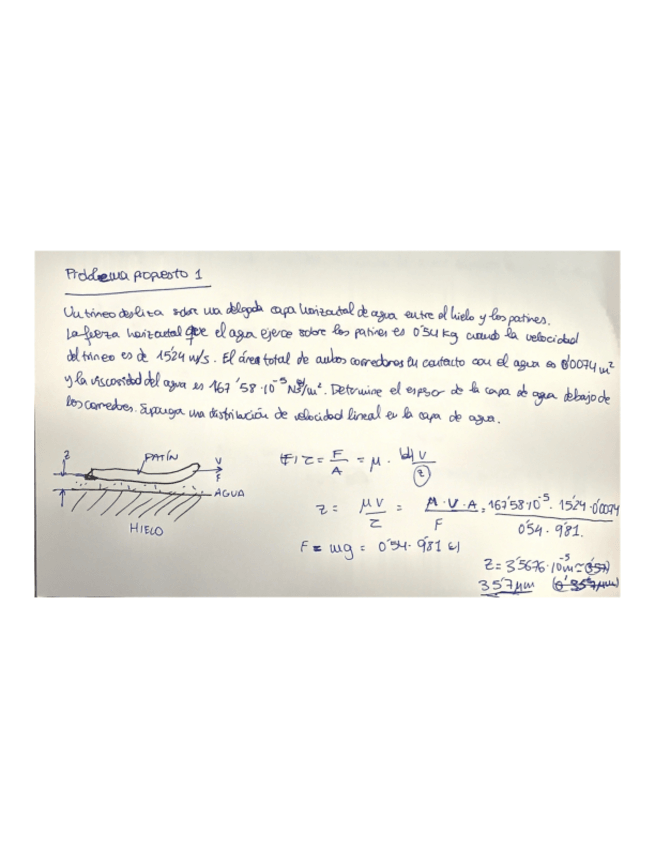 Problema propuesto 1
Un trineo desliza sobre una delgada capa horizontal de agua entre el hielo y los patines.
La fuerza horizontal que el agua ejerce sobre los patines es 0'54 kg cuando la velocidad
del trineo es de 15'24 m/s. El área total de ambos corredores en contacto con el agua es 0'0074 m²
y la viscosidad del agua es 167'58·10⁻⁵ N s/m². Determine el espesor de la capa de agua debajo de
los corredores. Suponga una distribución de velocidad lineal en la capa de agua.
z PATÍN V
F
AGUA
HIELO
τ = F/A = μ · V/z
z = μV/τ = μ·V·A/F = 167'58·10⁻⁵ · 15'24 · 0'0074 / 0'54 · 9'81.
F = mg = 0'54 · 9'81 N
z = 3'5676·10⁻⁵ m
35'7 μm